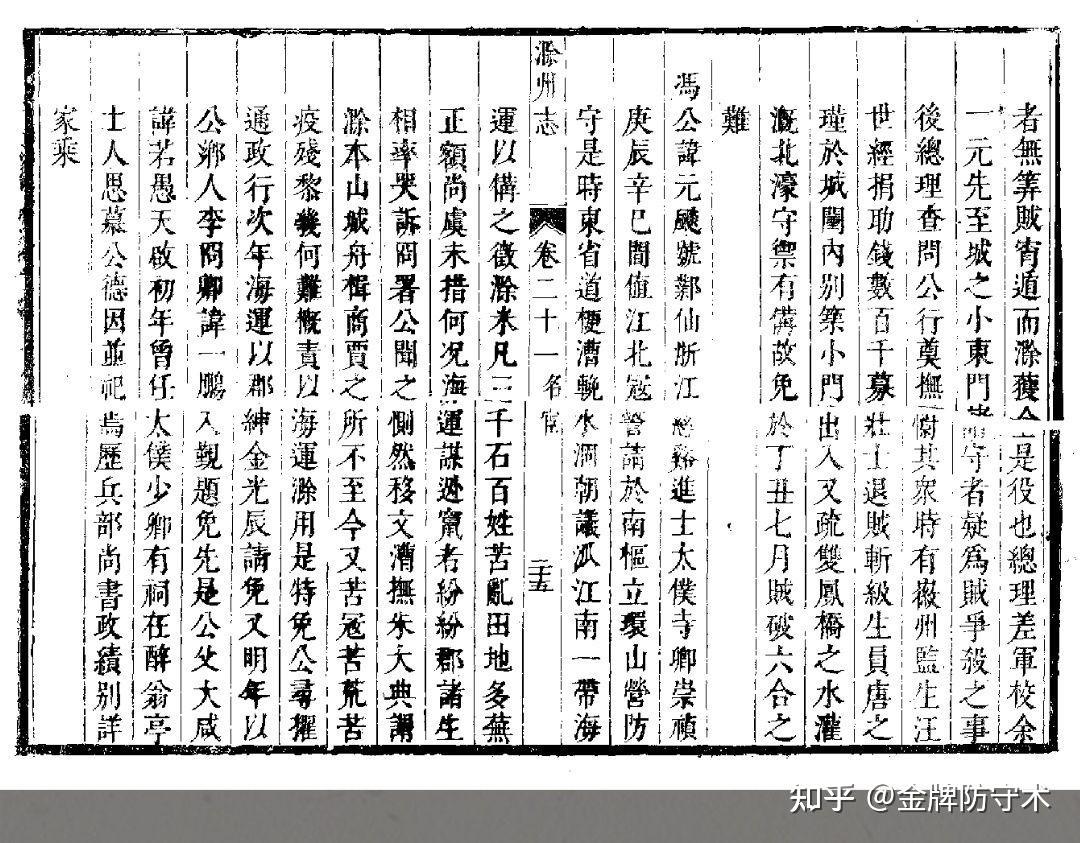 者無筭賊宵遁而滁獲全是役也總理差軍校余
一元先至城之小東門守者疑爲賊爭殺之事
後總理查問公行奠撫慰其衆時有嶶州監生汪
世經捐助錢數百千募壯士退賊斬級生員唐之
瑾於城闉內别築小門出入又疏雙鳳橋之水灌
溉北濠守禦有備故免於丁丑七月賊破六合之
難
馮公諱元颷號鄴仙浙江慈谿進士太僕寺卿崇禎
庚辰辛巳間値江北寇警請於南樞立環山營防
守是時東省道梗漕輓水涸朝議泒江南一帶海
滁州志
卷二十一 名宦
二十五
運以備之徵滁米凡三千石百姓苦亂田地多蕪
正額尚虞未措何况海運謀逃竄者紛紛郡諸生
相率哭訴冏署公聞之惻然移文漕撫朱大典謂
滁本山城舟楫商賈之所不至今又苦寇苦荒苦
疫殘黎幾何難慨責以海運滁用是特免公尋擢
通政行次年海運以郡紳金光辰請免又明年以
公鄉人李冏卿諱一鵬入覲題免先是公父大咸
諱若愚天啟初年曾任太僕少卿有祠在醉翁亭
士人思慕公德因並祀焉歷兵部尚書政績别詳
家乘
知乎 @金牌防守术